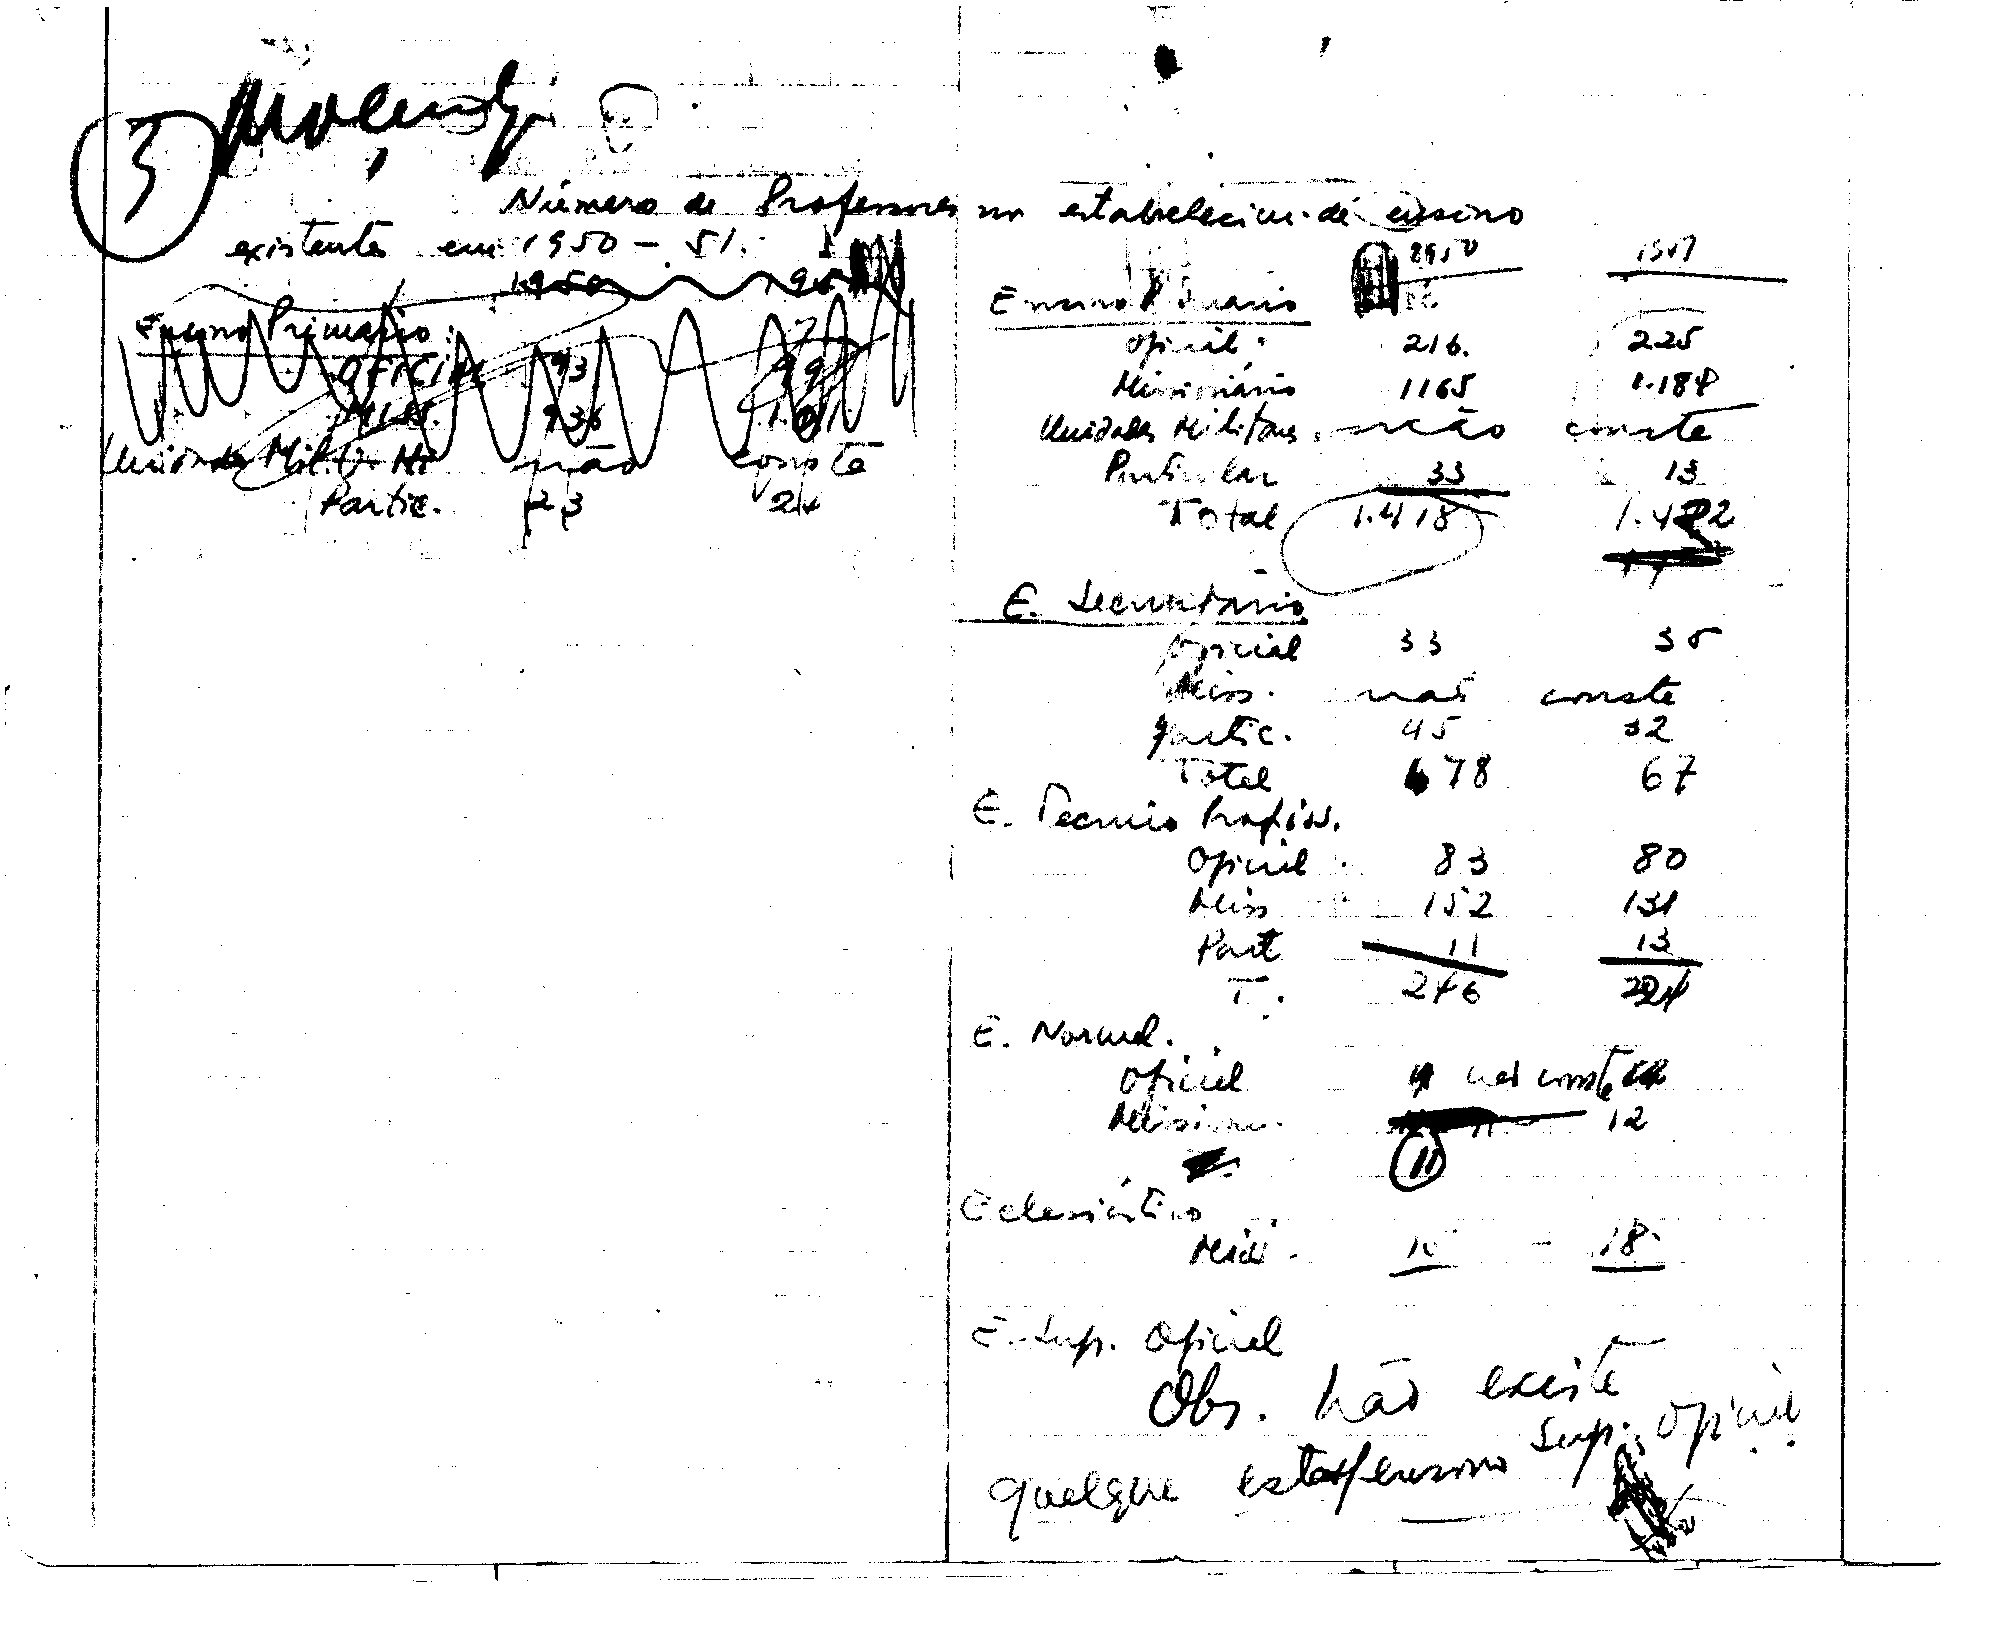 3
Número de Professores nos estabelecim. de ensino
existentes em 1950 - 51.
1950
Ensino Primário:
Oficial 93
Miss. 936
Unidades Milit. não consta
Partic. 23 24
1950 1951
Ensino Primario
Oficial: 216. 225
Missionário 1165 1.184
Unidades Militares não consta
Particular 33 13
Total 1.418 1.422
E. Secundário
Oficial 33 35
Miss. não consta
Partic. 45 32
Total 78 67
E. Tecnico Profiss.
Oficial 83 80
Miss 152 131
Part 11 13
T. 246 224
E. Normal.
Oficial não consta
Mission. 12
11
Eclesiástico
Miss. - 18.
E. Sup. Oficial
Obs. não existe
qualque estab ensino Sup. Oficial